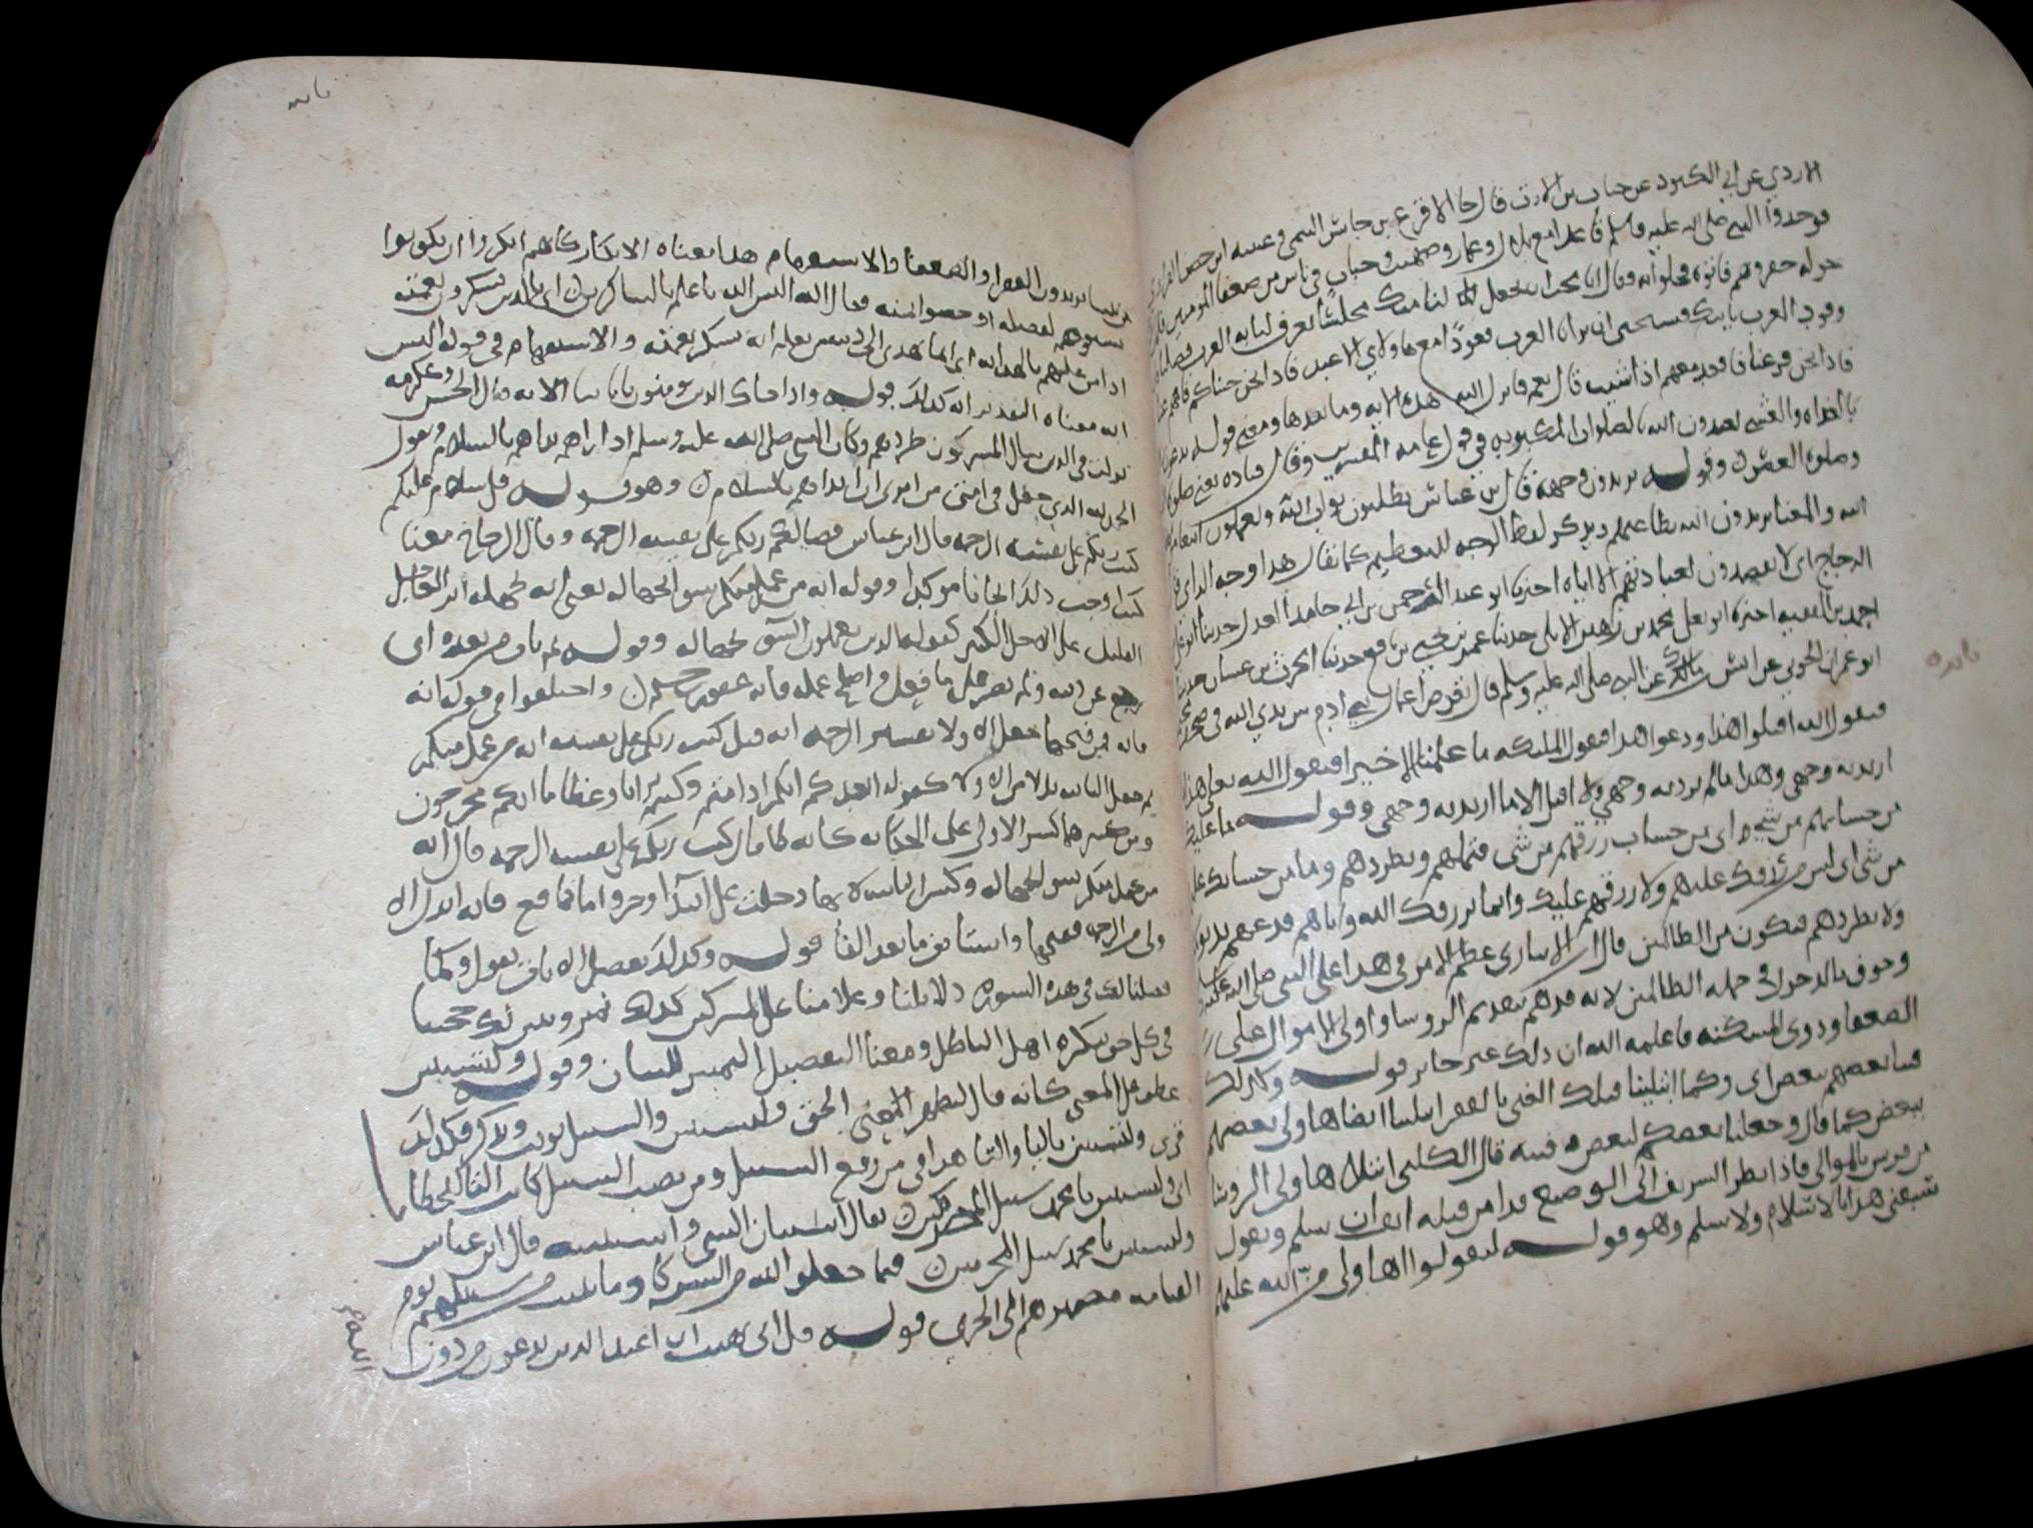 الازدي عن ابي الكنود عن خباب بن الارت قال جا الاقرع بن حابس التميمي وعيينه ابن حصن الفزاري
فوجدوا النبي صلى الله عليه وسلم قاعدا مع بلال وعمار وصهيب وخباب في ناس من ضعفا المومنين فلما
حوله حقروهم فاتوه فخلوا به فقالوا انا نحب ان تجعل لنا منك مجلسا تعرف لنا به العرب فضلنا فان
وفود العرب تاتيك فنستحيى ان ترانا العرب قعودا مع هاولاي الاعبد فاذا نحن جيناك فاقمهم عنا
فاذا نحن فرغنا فاقعد معهم اذا شيت قال نعم فانزل الله هذه الايه وما بعدها ومعنى قوله يدعون ربهم
بالغداه والعشي يعبدون الله بالصلوات المكتوبه في قول عامه المفسرين وقال قتاده يعني صلوه
وصلوه العصر وقوله يريدون وجهه قال بن عباس يطلبون ثواب الله ويعملون ابتغا مرضاه
الله والمعنا يريدون الله بطاعتهم ويذكر لفظ الوجه للتعظيم كما يقال هذا وجه الراي
الزجاج اي لا يقصدون بعبادتهم الا اياه اخبرنا ابو عبد الرحمن بن ابي حامد العدل حدثنا
احمد بن الفقيه اخبرنا ابو يعلى محمد بن زهير الايلي حدثنا عمر بن يحيى بن نافع حدثنا الحرث بن غسان حدثنا
ابو عمران الجوني عن انس بن مالك عن النبي صلى الله عليه وسلم قال تعرض اعمال بني ادم بين يدي الله في صحف
فيقول الله اقبلوا هذا ودعوا هذا فتقول المليكه ما علمنا الا خيرا فيقول الله تعالى هذا
اريد به وجهي وهذا ما لم يرد به وجهي ولا اقبل الا ما اريد به وجهي وقوله ما عليك
من حسابهم من شي اي من حساب رزقهم من شي فتملهم وتطردهم وما من حسابك عليهم
من شي اي ليس رزقك عليهم ولا رزقهم عليك وانما يرزقك الله واياهم فدعهم يدنوا
ولا تطردهم فتكون من الظالمين قال ابن الانباري عظم الامر في هذا على النبي صلى الله عليه وسلم
وخوف بالدخول في جمله الظالمين لانه قد هم بتقديم الروسا واولي الاموال على
الضعفا وذوي المسكنه فاعلمه الله ان ذلك غير جايز قوله وكذلك
فتنا بعضهم ببعض اي وكما ابتلينا قبلك الغني بالفقر ابتلينا ايضا هاولي بعضهم
ببعض كما قال وجعلنا بعضكم لبعض فتنه قال الكلبي ابتلا هاولي الروسا
من قريش بالموالي فاذا نظر الشريف الى الوضيع قد امن قبله انف ان يسلم ويقول
سبقني هذا بالاسلام ولا يسلم وهو قوله ليقولوا اهاولي من الله عليهم
من بيننا يريدون الفقرا والضعفا والاستفهام هذا معناه الانكار كانهم انكروا ان يكونوا
سبقوهم بفضيله او خصوا بمنه فقال الله اليس الله باعلم بالشاكرين اي بالذين يشكرون نعمته
اذا من عليهم بالهدايه اي انما يهدى الى دينه من يعلم انه يشكر نعمته والاستفهام في قوله اليس
الله معناه التقرير انه كذلك قوله واذا جاك الذين يومنون باياتنا الايه قال الحسن وعكرمه
نزلت في الذين سال المشركون طردهم وكان النبي صلى الله عليه وسلم اذا راهم بداهم بالسلام ويقول
الحمد لله الذي جعل في امتي من امرني ان ابداهم بالسلام وهو قوله قل سلام عليكم
كتب ربكم على نفسه الرحمه قال ابن عباس قضا لكم ربكم على نفسه الرحمه وقال الزجاج معنا
كتب اوجب ذلك ايجابا موكدا وقوله انه من عمل منكم سوا بجهاله يعني انه بجهله اثر العاجل
القليل على الاجل الكثير كقوله الذين يعملون السو بجهاله وقوله ثم تاب من بعده اي
رجع عن ذنبه ولم يصر على ما فعل واصلح عمله فانه غفور رحيم واختلفوا في قوله انه
فانه فمن فتحهما جعل الاولا تفسير الرحمه انه قيل كتب ربكم على نفسه انه من عمل منكم
ثم جعل الثانيه بدلا من الاولا كقوله ايعدكم انكم اذا متم وكنتم ترابا وعظاما انكم مخرجون
ومن كسرهما كسر الاولى على الحكايه كانه لما قال كتب ربكم على نفسه الرحمه قال انه
من عمل منكم سوا بجهاله وكسر الثانيه لانها دخلت على ابتدا وجزا واما نافع فانه ابدل الاولى
ولى من الرحمه ففتحها واستانف ما بعد الفا قوله وكذلك نفصل الايات يقول وكما
فصلنا لك في هذه السوره دلايلنا وعلامنا على المشركين كذلك نميز ونبين لك حجتنا
في كل حق ينكره اهل الباطل ومعنا التفصيل التمييز للبيان وقوله ولتستبين
عطف على المعنى كانه قال ليظهر الحق وليستبين والسبيل يونث ويذكر فلذلك
قرى ولتستبين باليا والتا هذا في من رفع السبيل ومن نصب السبيل كانت التا للخطاب
اي ولتستبين يا محمد سبيل المجرمين يقال استبان الشي واستبنته قال ابن عباس
ولتستبين يا محمد سبيل المجرمين فيما جعلوا لله من الشركا وما بينت من سبيلهم يوم
القيامه ومصيرهم الى الخزي قوله قل اني نهيت ان اعبد الذين تدعون من دون
الله